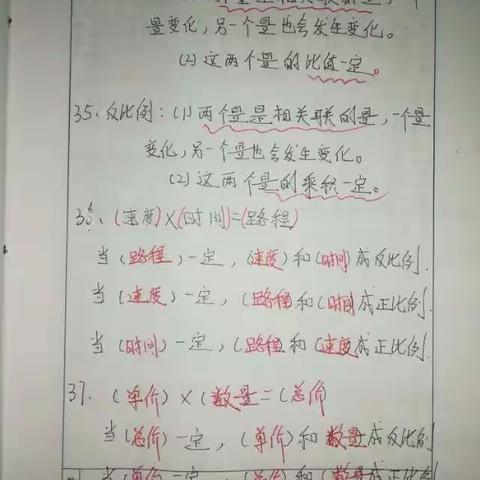 量变化,另一个量也会发生变化。
(2)这两个量的比值一定。
35、反比例:(1)两个量是相关联的量,一个量
变化,另一个量也会发生变化。
(2)这两个量的乘积一定。
36、(速度)×(时间)=(路程)
当(路程)一定,(速度)和(时间)成反比例.
当(速度)一定,(路程)和(时间)成正比例.
当(时间)一定,(路程)和(速度)成正比例.
37.(单价)×(数量=(总价
当(总价)一定,(单价)和数量成反比例
当(单价一定,(总价)和(数量成正比例